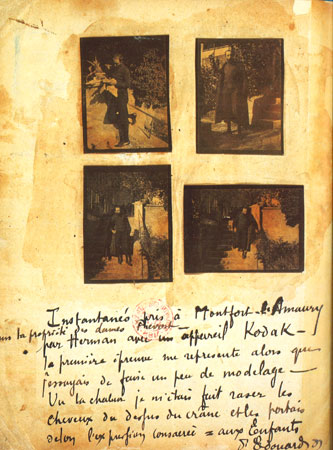 Instantanés pris à Montfort-l'Amaury
dans la propriété des dames Chevert
par Herman avec un appareil KODAK -
la première épreuve me représente alors que
j'essayais de faire un peu de modelage -
Vu la chaleur je m'étais fait raser les
cheveux du dessus du crâne et les portais
selon l'expression consacrée = aux Enfants
d'Edouard